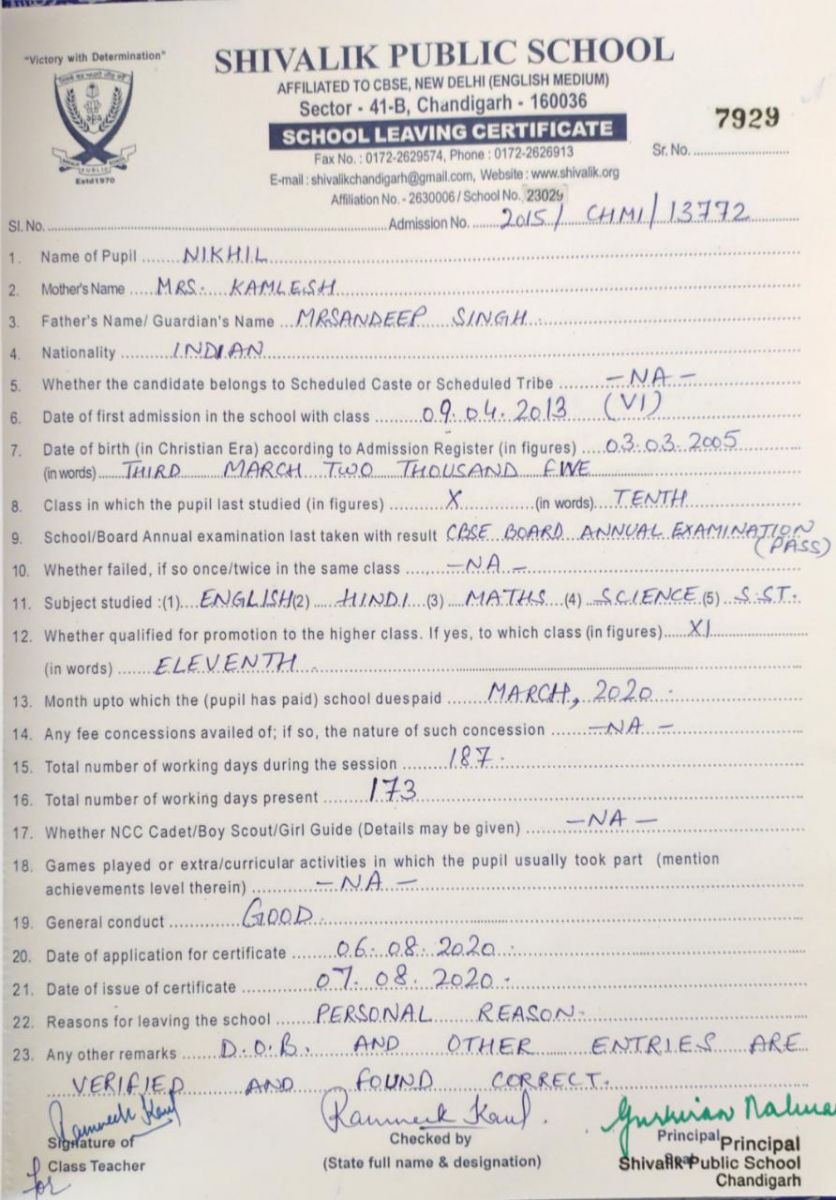 "Victory with Determination"
SHIVALIK PUBLIC SCHOOL
AFFILIATED TO CBSE, NEW DELHI (ENGLISH MEDIUM)
Sector - 41-B, Chandigarh - 160036
SCHOOL LEAVING CERTIFICATE
7929
Fax No. : 0172-2629574, Phone : 0172-2626913
Sr. No.
E-mail : shivalikchandigarh@gmail.com, Website : www.shivalik.org
Estd 1970
Affiliation No. - 2630006 / School No. 23029
Sl. No. Admission No. 2015/ CHMI/13772
1. Name of Pupil NIKHIL
2. Mother's Name MRS. KAMLESH
3. Father's Name/ Guardian's Name MRSANDEEP SINGH
4. Nationality INDIAN
5. Whether the candidate belongs to Scheduled Caste or Scheduled Tribe -NA-
6. Date of first admission in the school with class 09.04.2013 (VI)
7. Date of birth (in Christian Era) according to Admission Register (in figures) 03.03.2005
(in words) THIRD MARCH TWO THOUSAND FIVE
8. Class in which the pupil last studied (in figures) X (in words) TENTH
9. School/Board Annual examination last taken with result CBSE BOARD ANNUAL EXAMINATION
(PASS)
10. Whether failed, if so once/twice in the same class -NA-
11. Subject studied :(1) ENGLISH (2) HINDI (3) MATHS (4) SCIENCE (5) S.ST.
12. Whether qualified for promotion to the higher class. If yes, to which class (in figures) XI
(in words) ELEVENTH
13. Month upto which the (pupil has paid) school duespaid MARCH, 2020.
14. Any fee concessions availed of; if so, the nature of such concession -NA-
15. Total number of working days during the session 187.
16. Total number of working days present 173
17. Whether NCC Cadet/Boy Scout/Girl Guide (Details may be given) -NA-
18. Games played or extra/curricular activities in which the pupil usually took part (mention
achievements level therein) -NA-
19. General conduct GOOD
20. Date of application for certificate 06.08.2020.
21. Date of issue of certificate 07.08.2020.
22. Reasons for leaving the school PERSONAL REASON.
23. Any other remarks D.O.B. AND OTHER ENTRIES ARE
VERIFIED AND FOUND CORRECT.
Ramneek Kaul Ramneek Kaul.
Signature of Checked by Principal Principal
for Class Teacher (State full name & designation) Shivalik Public School
Chandigarh